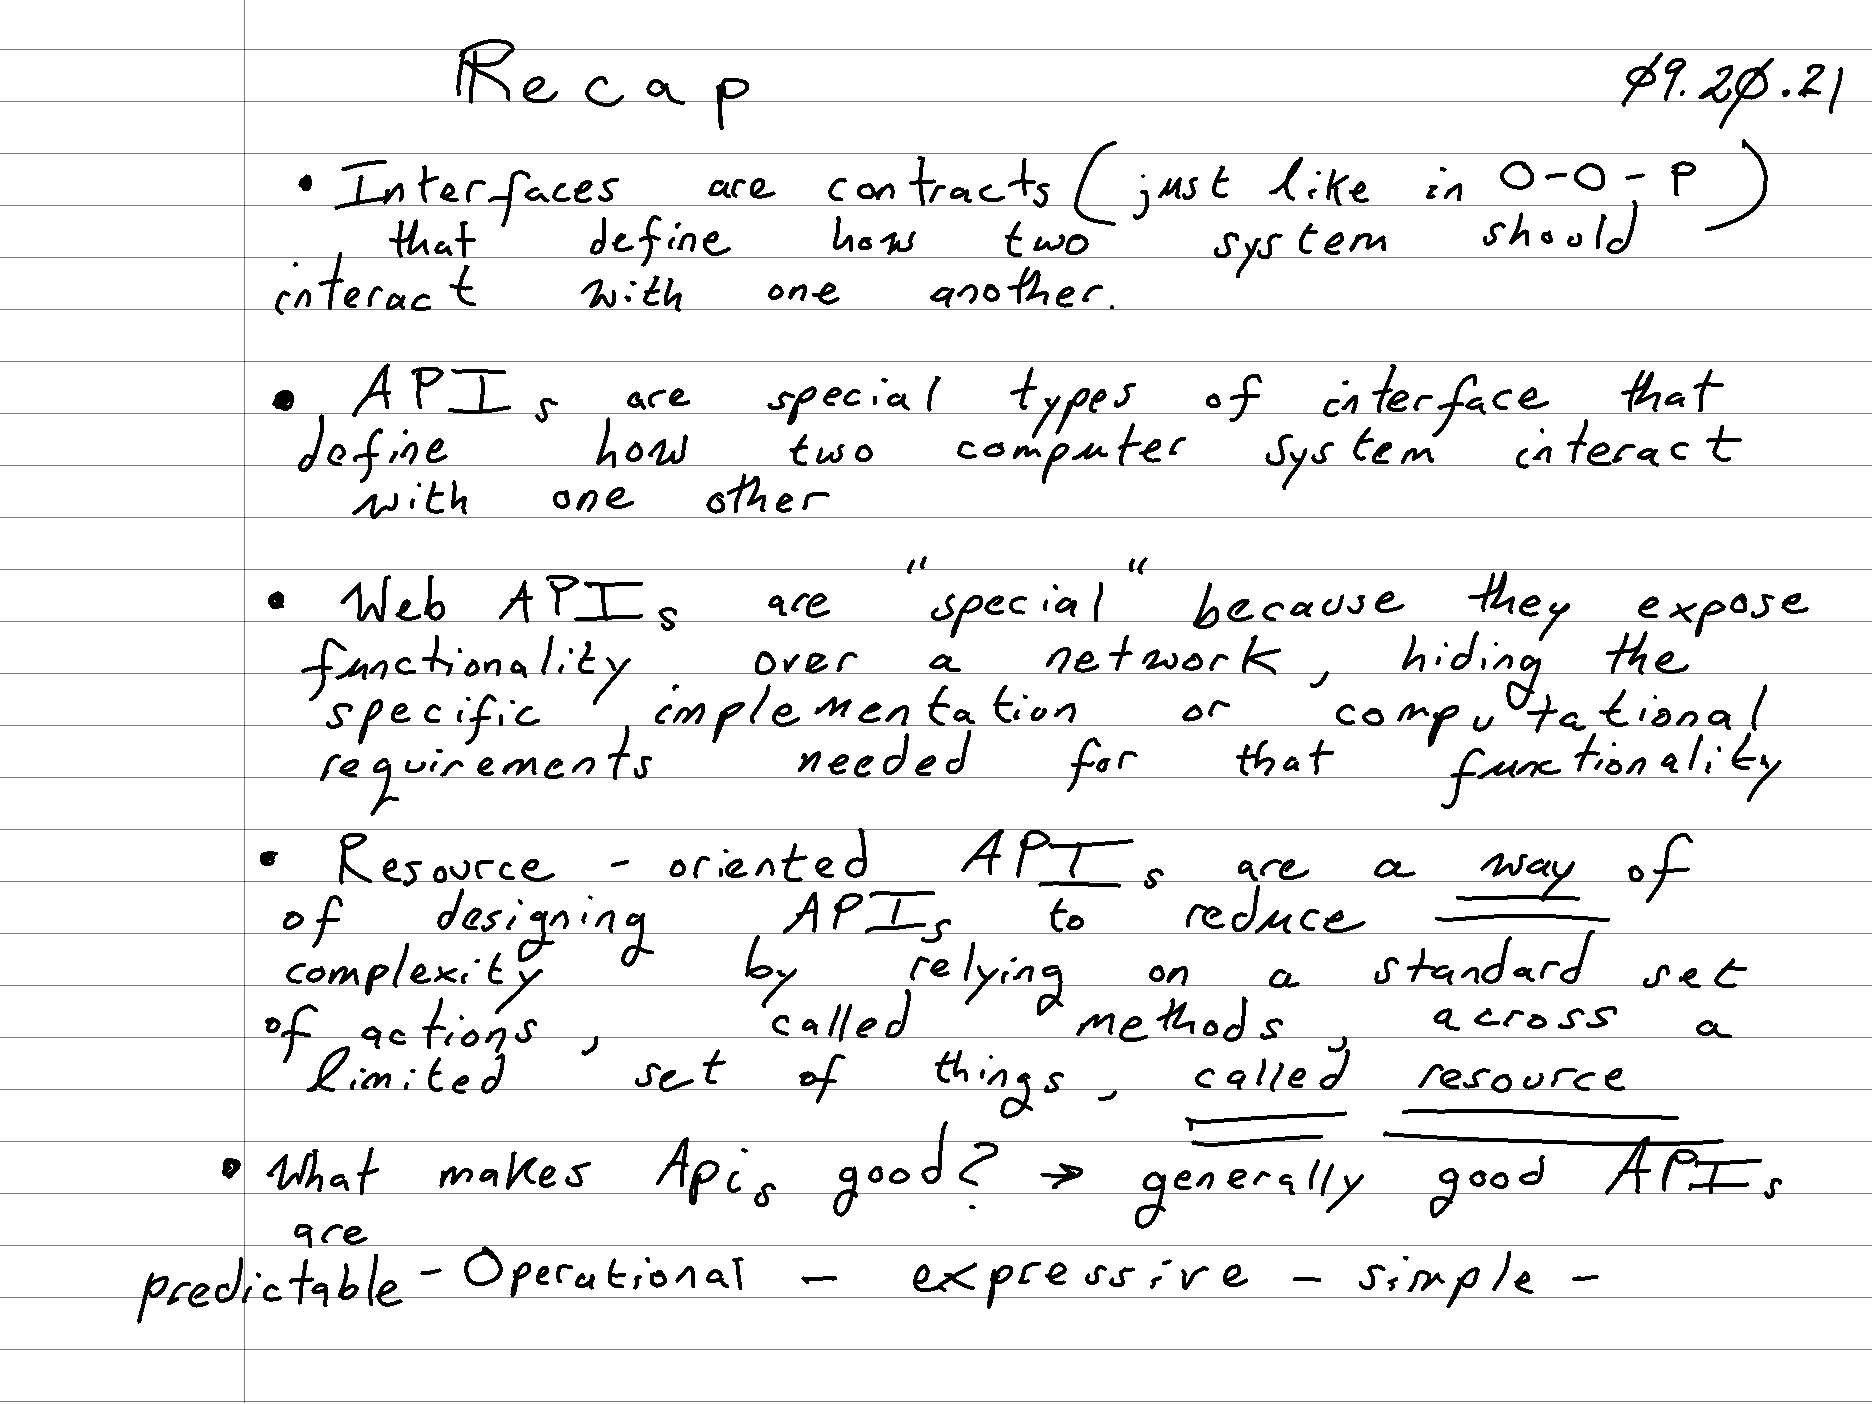 Recap
09.20.21
• Interfaces are contracts (just like in O-O-P)
that define how two system should
interact with one another.
• APIs are special types of interface that
define how two computer system interact
with one other
• Web APIs are "special" because they expose
functionality over a network, hiding the
specific implementation or computational
requirements needed for that functionality
• Resource - oriented APIs are a way of
of designing APIs to reduce
complexity by relying on a standard set
of actions, called methods, across a
limited set of things, called resource
• What makes Apis good? → generally good APIs
are
predictable - Operational - expressive - simple -